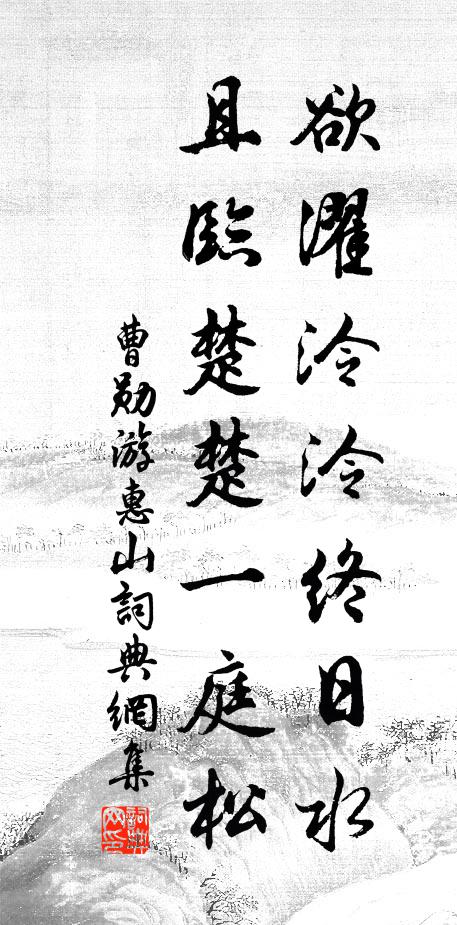 欲濯泠泠终日水
且臨楚楚一庭松
曹勛游惠山詞典網集